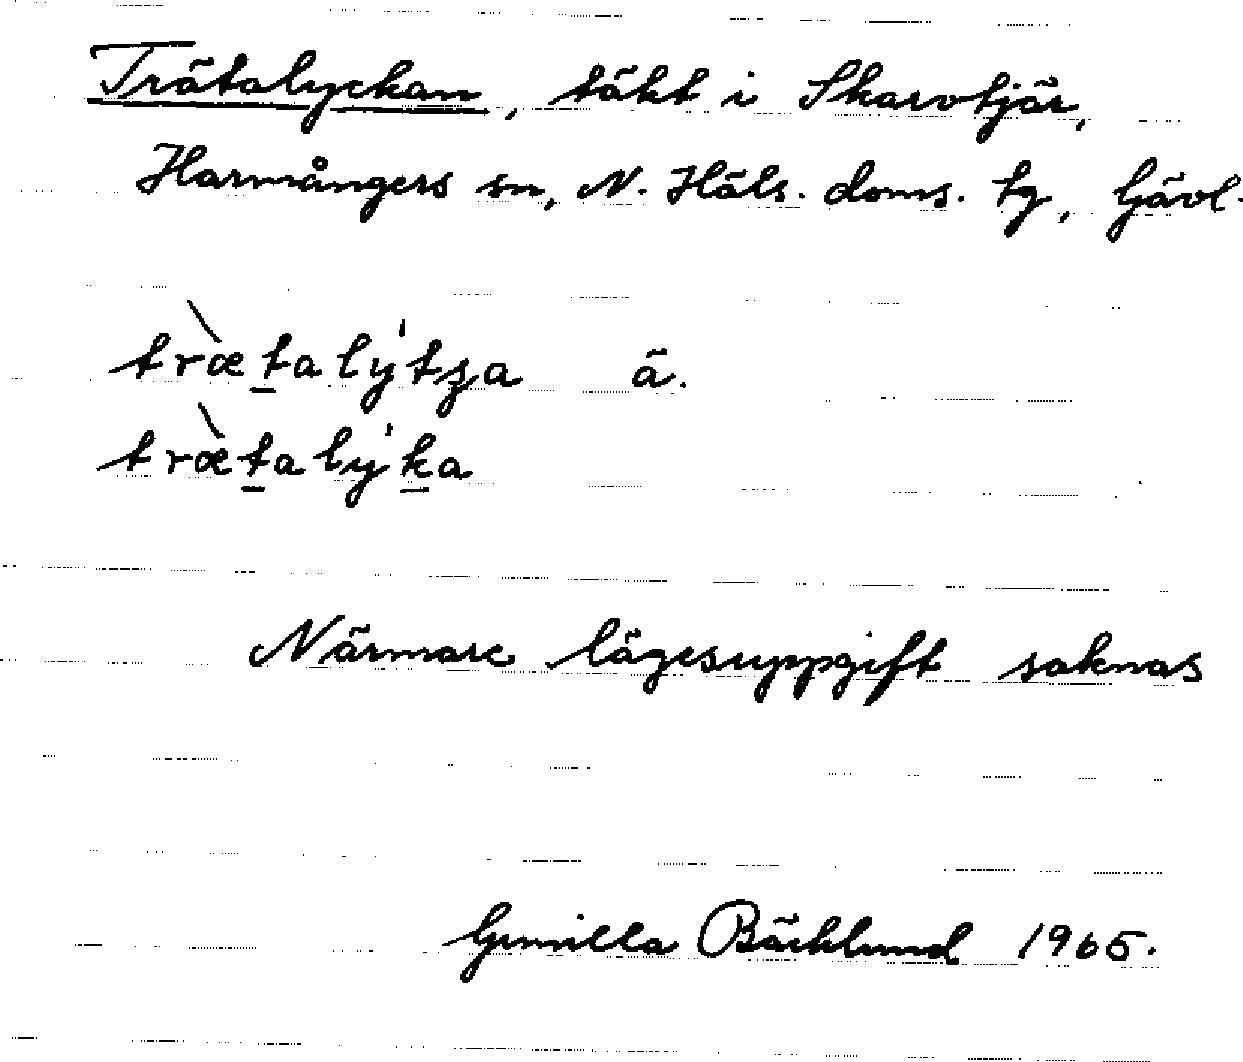 Trätalyckan, täkt i Skarvtjär,
Harmångers sn, N. Häls. doms. tg, Gävl.
tràetalýtʒa ä.
tràetalýka
Närmare lägesuppgift saknas
Gunilla Bäcklund 1965.